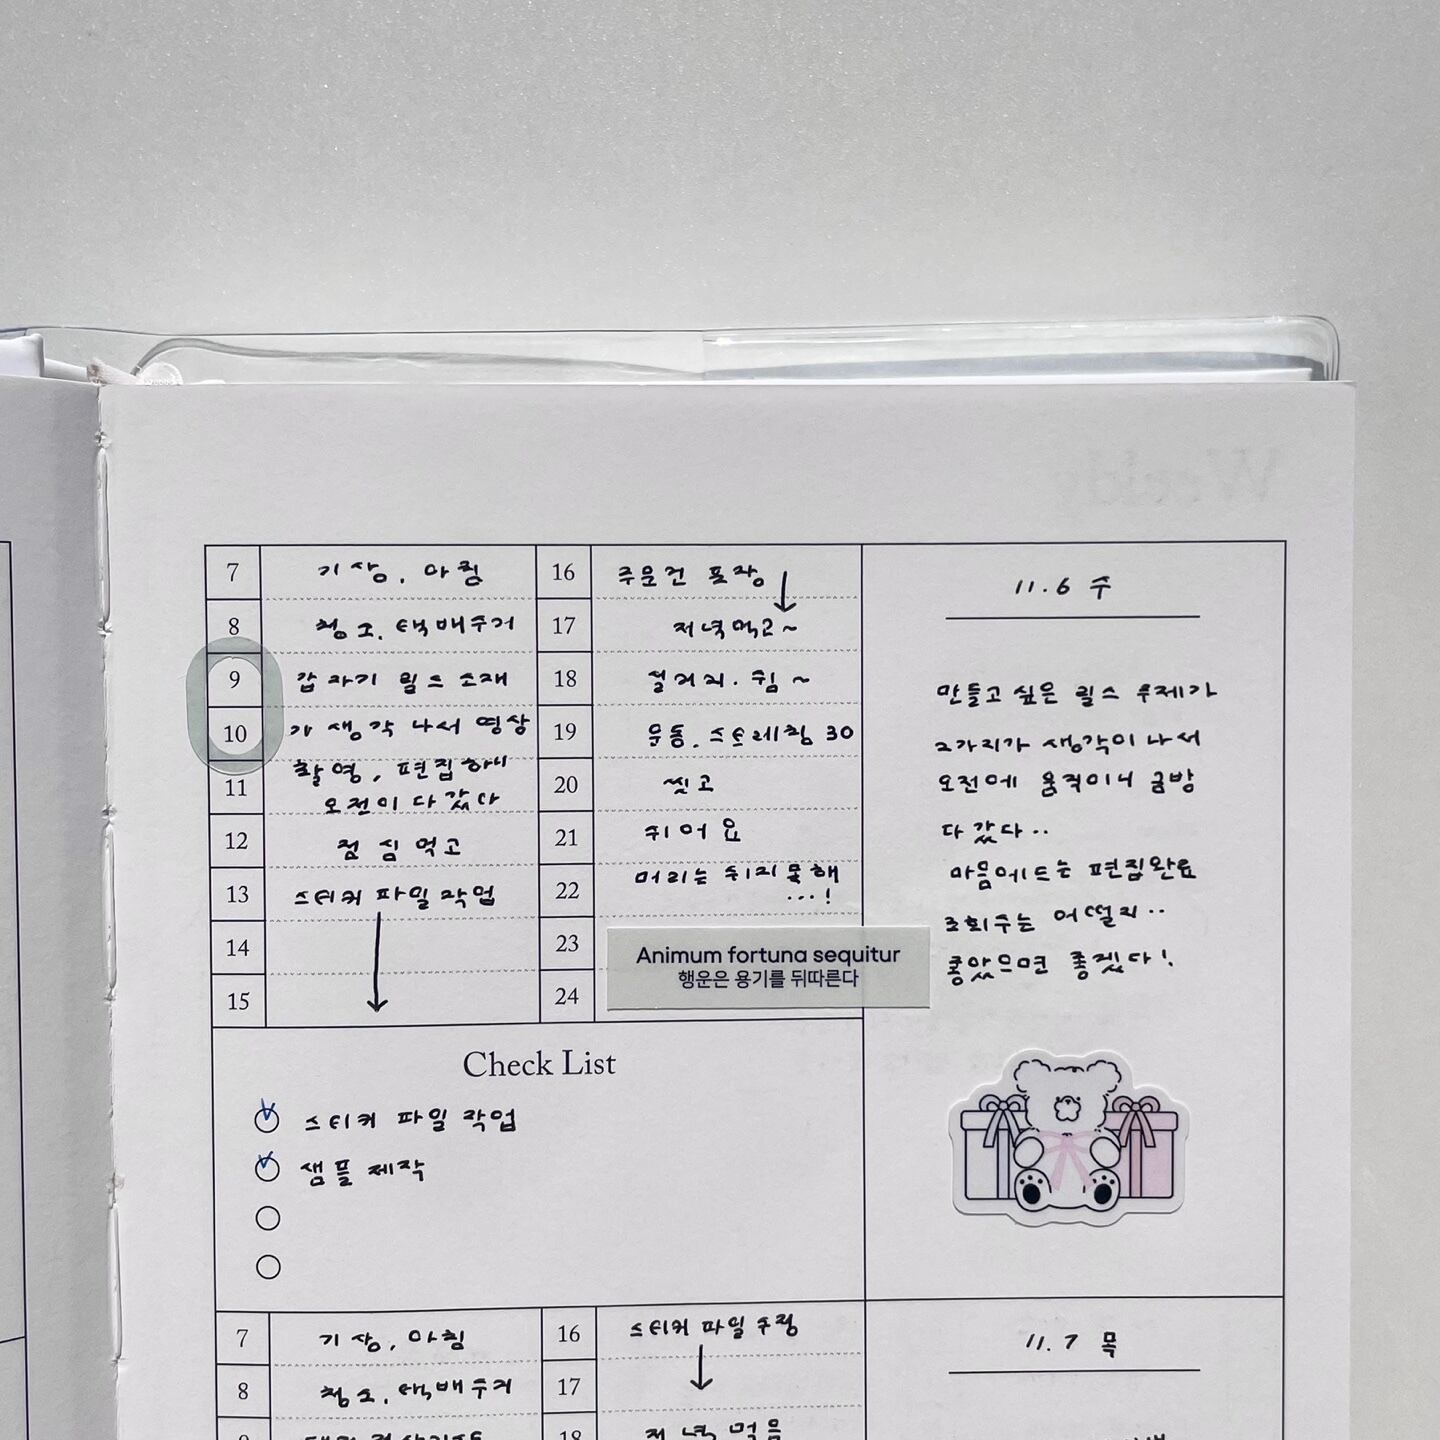 Weekly
7 기상, 아침
8 청소, 택배수거
9 갑자기 릴스 소재
10 가 생각 나서 영상
11 촬영, 편집하니
오전이 다 갔다
12 점심 먹고
13 스티커 파일 작업
14
15
16 주문건 포장
17 저녁먹고~
18 설거지. 쉼~
19 운동, 스트레칭 30
20 씻고
21 쉬어요
22 머리는 쉬지 못해
...!
23
24
Animum fortuna sequitur
행운은 용기를 뒤따른다
11.6 수
만들고 싶은 릴스 주제가
2가지가 생각이 나서
오전에 움직이니 금방
다 갔다..
마음에드는 편집완료
조회수는 어떨지..
좋았으면 좋겠다!
Check List
스티커 파일 작업
샘플 제작
7 기상, 아침
8 청소, 택배수거
9
16 스티커 파일 수정
17
18 저녁 먹음
11.7 목